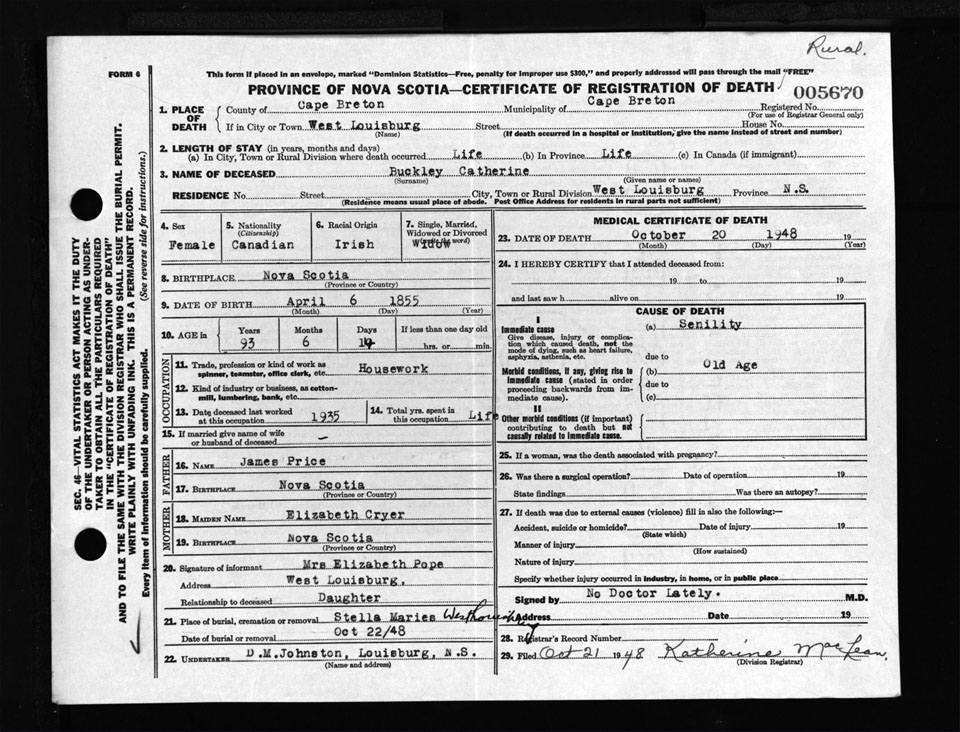 Rural.
FORM 6
This form if placed in an envelope, marked "Dominion Statistics—Free, penalty for improper use $300," and properly addressed will pass through the mail "FREE"
PROVINCE OF NOVA SCOTIA—CERTIFICATE OF REGISTRATION OF DEATH
005670
1. PLACE OF DEATH
County of Cape Breton Municipality of Cape Breton Registered No.
(For use of Registrar General only)
If in City or Town West Louisburg Street House No.
(Name) (If death occurred in a hospital or institution, give the name instead of street and number)
2. LENGTH OF STAY (in years, months and days)
(a) In City, Town or Rural Division where death occurred Life (b) In Province Life (c) In Canada (if immigrant)
3. NAME OF DECEASED Buckley Catherine
(Surname) (Given name or names)
RESIDENCE No. Street City, Town or Rural Division West Louisburg Province N.S.
(Residence means usual place of abode. Post Office Address for residents in rural parts not sufficient)
4. Sex
Female
5. Nationality
(Citizenship)
Canadian
6. Racial Origin
Irish
7. Single, Married,
Widowed or Divorced
(write the word)
Widow
8. BIRTHPLACE Nova Scotia
(Province or Country)
9. DATE OF BIRTH April 6 1855
(Month) (Day) (Year)
10. AGE in
Years Months Days If less than one day old
93 6 14 hrs. or min.
OCCUPATION
11. Trade, profession or kind of work as
spinner, teamster, office clerk, etc. Housework
12. Kind of industry or business, as cotton-
mill, lumbering, bank, etc.
13. Date deceased last worked
at this occupation 1935
14. Total yrs. spent in
this occupation Life
15. If married give name of wife
or husband of deceased –
FATHER
16. NAME James Price
17. BIRTHPLACE Nova Scotia
(Province or Country)
MOTHER
18. MAIDEN NAME Elizabeth Cryer
19. BIRTHPLACE Nova Scotia
(Province or Country)
20. Signature of informant Mrs Elizabeth Pope
Address West Louisburg,
Relationship to deceased Daughter
21. Place of burial, cremation or removal Stella Maries West Louisburg
Date of burial or removal Oct 22/48
22. UNDERTAKER D.M.Johnston, Louisburg, N.S.
(Name and address)
MEDICAL CERTIFICATE OF DEATH
23. DATE OF DEATH October 20 1948 19
(Month) (Day) (Year)
24. I HEREBY CERTIFY that I attended deceased from:
19 to 19
and last saw h alive on 19
CAUSE OF DEATH
I
Immediate cause
Give disease, injury or complica-
tion which caused death, not the
mode of dying, such as heart failure,
asphyxia, asthenia, etc.
(a) Senility
due to
Morbid conditions, if any, giving rise to
immediate cause (stated in order
proceeding backwards from im-
mediate cause).
(b) Old Age
due to
(c)
II
Other morbid conditions (if important)
contributing to death but not
causally related to immediate cause.
25. If a woman, was the death associated with pregnancy?
26. Was there a surgical operation? Date of operation 19
State findings Was there an autopsy?
27. If death was due to external causes (violence) fill in also the following:—
Accident, suicide or homicide? Date of injury 19
(State which)
Manner of injury
(How sustained)
Nature of injury
Specify whether injury occurred in industry, in home, or in public place
Signed by No Doctor Lately. M.D.
Address Date 19
28. Registrar's Record Number
29. Filed Oct 21 1948 Katherine MacLean,
(Division Registrar)
SEC. 46—VITAL STATISTICS ACT MAKES IT THE DUTY
OF THE UNDERTAKER OR PERSON ACTING AS UNDER-
TAKER TO OBTAIN ALL THE PARTICULARS REQUIRED
IN THE "CERTIFICATE OF REGISTRATION OF DEATH"
AND TO FILE THE SAME WITH THE DIVISION REGISTRAR WHO SHALL ISSUE THE BURIAL PERMIT.
WRITE PLAINLY WITH UNFADING INK. THIS IS A PERMANENT RECORD.
Every item of information should be carefully supplied. (See reverse side for instructions.)